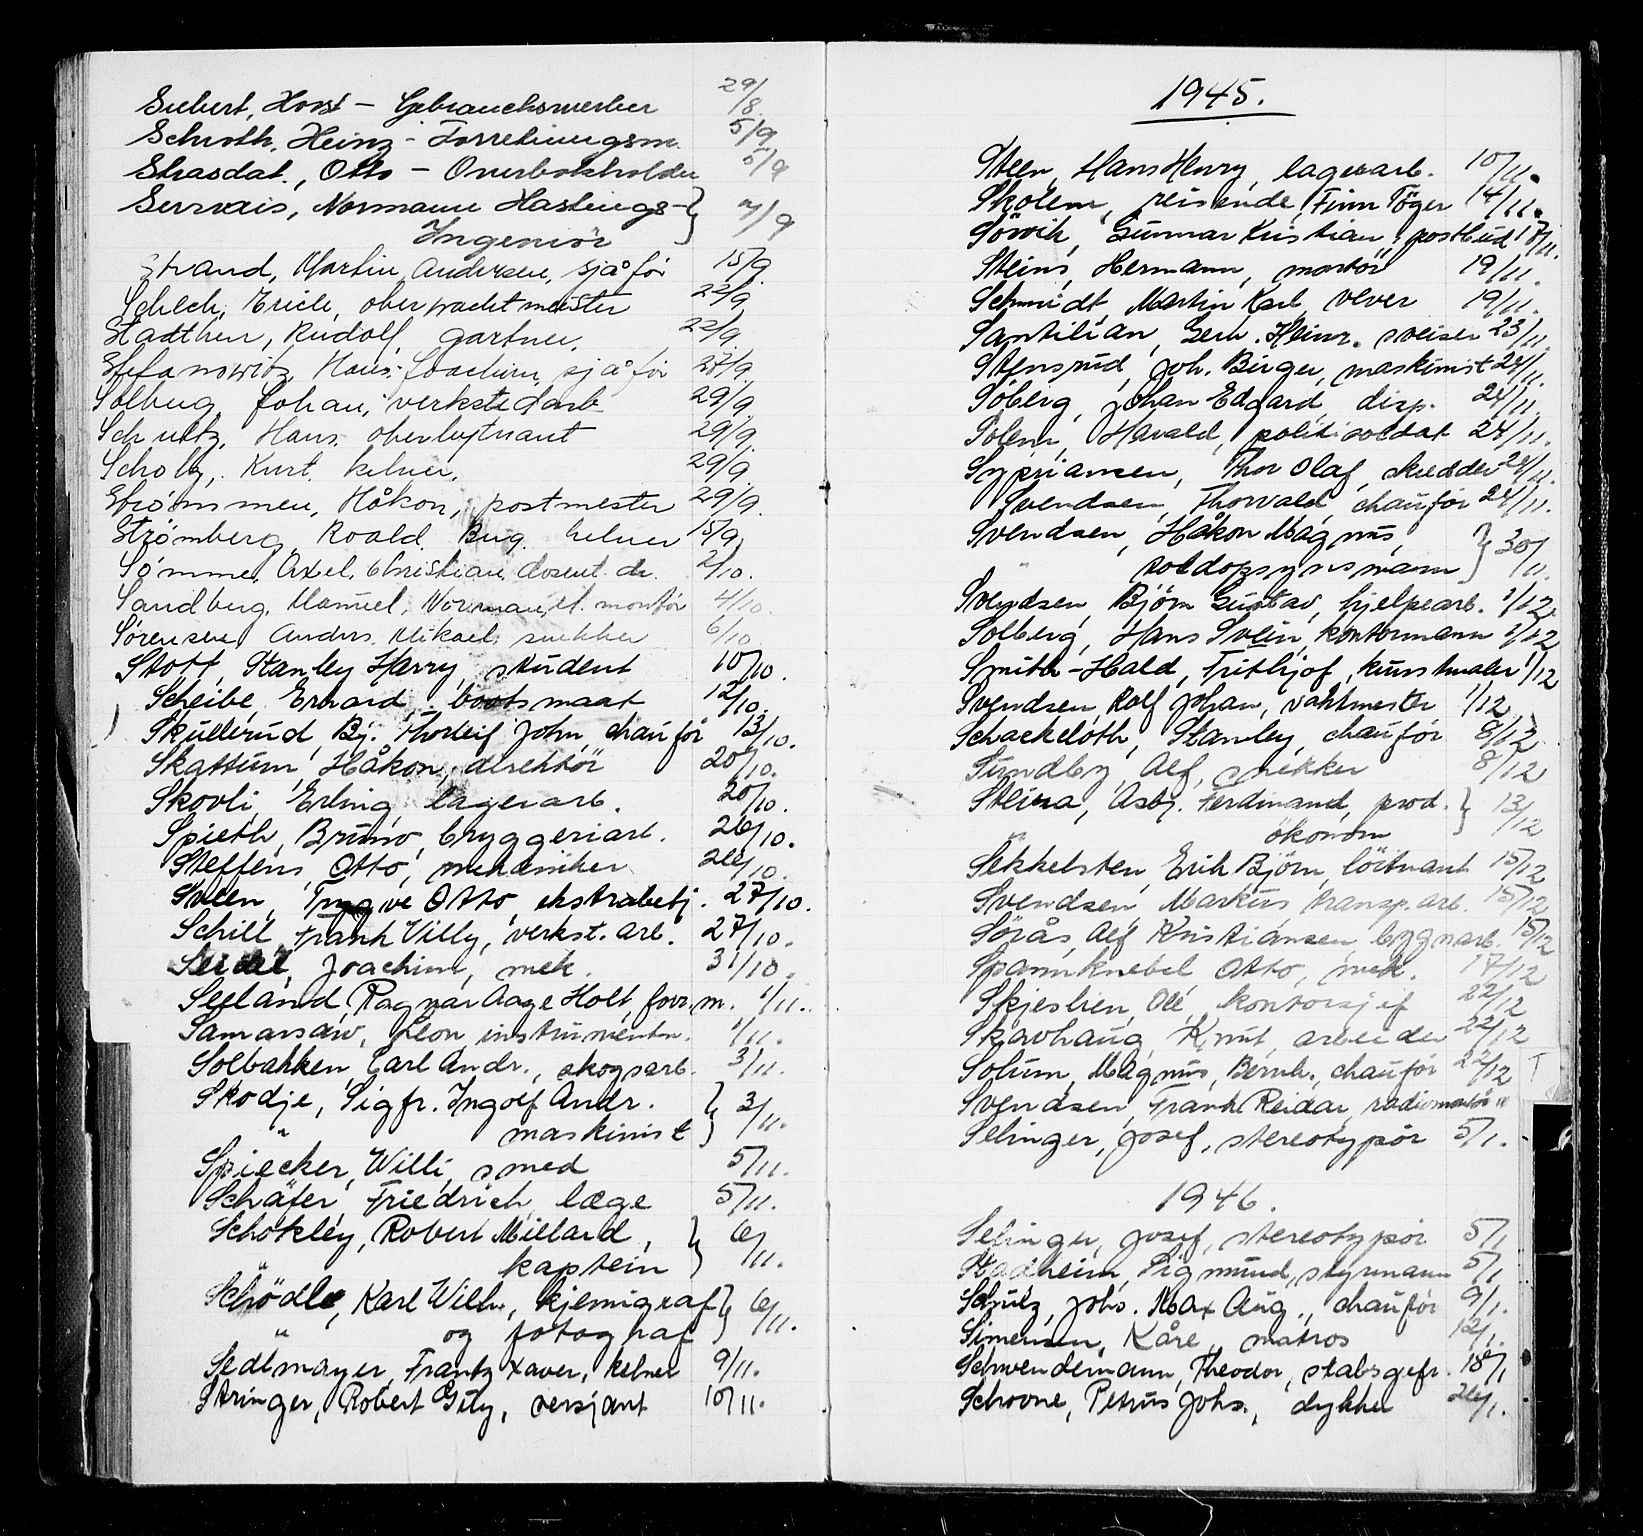 Siebert, Horst – Gebrauchswerber 29/8.
Schroth, Heinz – Forretningsm. 5/9
Strasdat., Otto – Overbotsholder 5/9
Servais, Normann Hastings- } 7/9
Ingeniör
Strand, Martin Andersen, sjåför 15/9.
Schlech, Erich, oberwachtmeister 22/9.
Stadtherr, Rudolf, gartner. 22/9.
Stefanowitz, Hans-Joachim, sjåför 27/9.
Solberg, Johan, verkstedarb. 29/9.
Schultz, Hans, oberleytnant 29/9.
Scholz, Kurt, kelner. 29/9.
Strömmen, Håkon, postmester 29/9.
Strømberg, Roald. Birg. kelner 15/9.
Sømme, Axel, Christian, dosent. dr. 2/10.
Sandberg, Manuel, Norman, el. montör 4/10.
Sørensen Anders, Mikael, snekker 6/10.
Stott, Stanley Harry, student 10/10.
Scheibe, Erhard, bootsmaat 12/10.
Skullerud, Bj. Thorleif John, chauför 13/10.
Skattum, Håkon, direktör 20/10.
Skovli, Erling, lagerarb. 20/10.
Spieth, Bruno, bryggeriarb. 26/10.
Steffens, Otto, mekaniker 26/10.
Sveen, Trygve Otto, ekstrabetj. 27/10.
Schill, Frank Villy, verkst. arb. 27/10.
Seidel, Joachim, mek. 31/10.
Seeland, Ragnar Aage Holt, forr.m. 1/11.
Samarsaw, Leon, instrumentm. 1/11.
Solbakken, Carl Andr., skogsarb. 3/11.
Skodje, Sigfr. Ingolf Andr. } 3/11.
" maskinist
Spiecker, Willi, smed 5/11.
Schäfer, Friedrich, læge 5/11.
Schokley, Robert Millard, } 6/11.
kaptein
Schödle, Karl Wilh., kjemigraf } 6/11.
" og fotograf
Sedlmayer, Frantz Xaver, kelner 9/11.
Stringer, Robert Guy, sersjant 10/11.
1945.
Steen, Hans Henry, lagerarb. 10/11.
Skolem, reisende, Finn Töger 14/11.
Sörvik, Gunnar Kristian, postbud 17/11.
Steins, Hermann, montör 19/11.
Schmidt, Martin Karl, vever 19/11.
Santilian, Gerh. Heinr. sveiser 23/11.
Stensrud, Joh. Birger, maskinist 24/11.
Söberg, Johan Edgard, disp. 24/11.
Solem, Harald, politisoldat 24/11.
Sypriansen, Thor Olaf, skredder 24/11.
Svendsen, Thorvald, chauför 24/11.
Svendsen, Håkon Magnus, } 30/11.
" toldopsynsmann
Svendsen, Björn Gustav, hjelpearb. 1/12.
Solberg, Hans Svein, kontormann 1/12
Smith-Hald, Frithjof, kunstmaler 1/12
Svendsen, Rolf Johan, vaktmester 1/12
Schackeloth, Stanley, chauför 8/12
Sundby, Alf, snekker 8/12
Steira, Asbj. Ferdinand, prod. } 13/12
ökonom
Sekkelsten, Erik Björn, löitnant 15/12
Svendsen, Markus, transp. arb. 15/12
Sörås, Alf Kristiansen, bygn.arb. 15/12
Spannknebel, Otto, mek. 17/12
Skjeslien, Ole, kontorsjef 22/12
Skavhaug, Knut, arbeider 22/12
Solum, Magnus, Bernh., chauför 22/12
Svendsen, Frank Reidar, radiomontör "
Selinger, Josef, stereotypör 5/1.
1946.
Selinger, Josef, stereotypör 5/1
Stadheim, Sigmund, styrmann 5/1
Schulz, Johs. Max Aug., chauför 9/1.
Simensen, Kåre, matros 12/1.
Schwendemann, Theodor, stabsgefr. 18/1
Schovne, Petrus Johs., dykker 26/1.